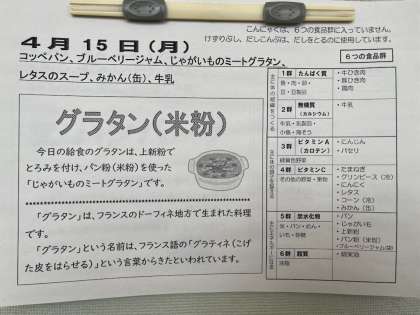 こんにゃくは、6つの食品群に入っていません。
けずりぶし、だしこんぶは、だしをとるのに使用しています。
4月15日(月)
コッペパン、ブルーベリージャム、じゃがいものミートグラタン、
レタスのスープ、みかん(缶)、牛乳
グラタン(米粉)
今日の給食のグラタンは、上新粉で
とろみを付け、パン粉(米粉)を使った
「じゃがいものミートグラタン」です。
「グラタン」は、フランスのドーフィネ地方で生まれた料理
です。
「グラタン」という名前は、フランス語の「グラティネ(こげ
た皮をはらせる)」という言葉からきたといわれています。
6つの食品群
1群 たんぱく質
魚・肉・卵・
豆・豆製品
・牛ひき肉
・豚ひき肉
2群 無機質
(カルシウム)
牛乳・乳製品・
小魚・海そう
・牛乳
3群 ビタミンA
(カロテン)
緑黄色野菜
・にんじん
・パセリ
4群 ビタミンC
その他の野菜・果物
・たまねぎ
・グリンピース(冷)
・にんにく
・レタス
・コーン(冷)
・みかん(缶)
5群 炭水化物
米・パン・めん・
いも・砂糖
・パン
・じゃがいも
・上新粉
・パン粉(米粉)
・ブルーベリージャム(袋)
6群 脂質
油脂